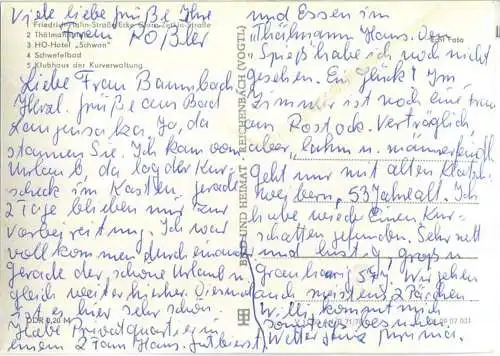 Viele liebe Grüße Ihre
Frau Roßler
Friedrich-Jahn-Straße/Ecke Clara-Zetkin-Straße
2 Thälmann
3 HO-Hotel „Schwan"
4 Schwefelbad
5 Klubhaus der Kurverwaltung
Liebe Frau Baumbach
Herzl. Grüße aus Bad
Langensalza. Ja, da
staunen Sie. Ich kam vom
Urlaub, da lag der Kur-
scheck im Kasten, gerade
2 Tage blieben mir zur
Vorbereitung. Ich war
vollkommen durcheinander
gerade der schöne Urlaub u.
gleich weiter hierher. Diesmal
ist es hier sehr schön.
Habe Privatquartier in
einem 2 Fam. Haus. Gut
DDR 0,20 M
BILD UND HEIMAT · REICHENBACH (VOGTL)
und Essen im
Thälmann Haus. Den
Foto
Spieß habe ich noch nicht
gesehen. Ein Glück! Im
Zimmer ist noch eine Frau
aus Rostock. Verträglich,
aber, lahm u. männerfeindl.
geht nur mit alten Klatsch-
weibern, 53 Jahre alt. Ich
habe wieder einen Kur-
schatten gefunden. Sehr nett
und lustig, groß u
grauhaarig 57 J. Wir gehen
auch meistens 2 Pärchen
Willi kommt mich
besuchen
Wetter ganz prima.